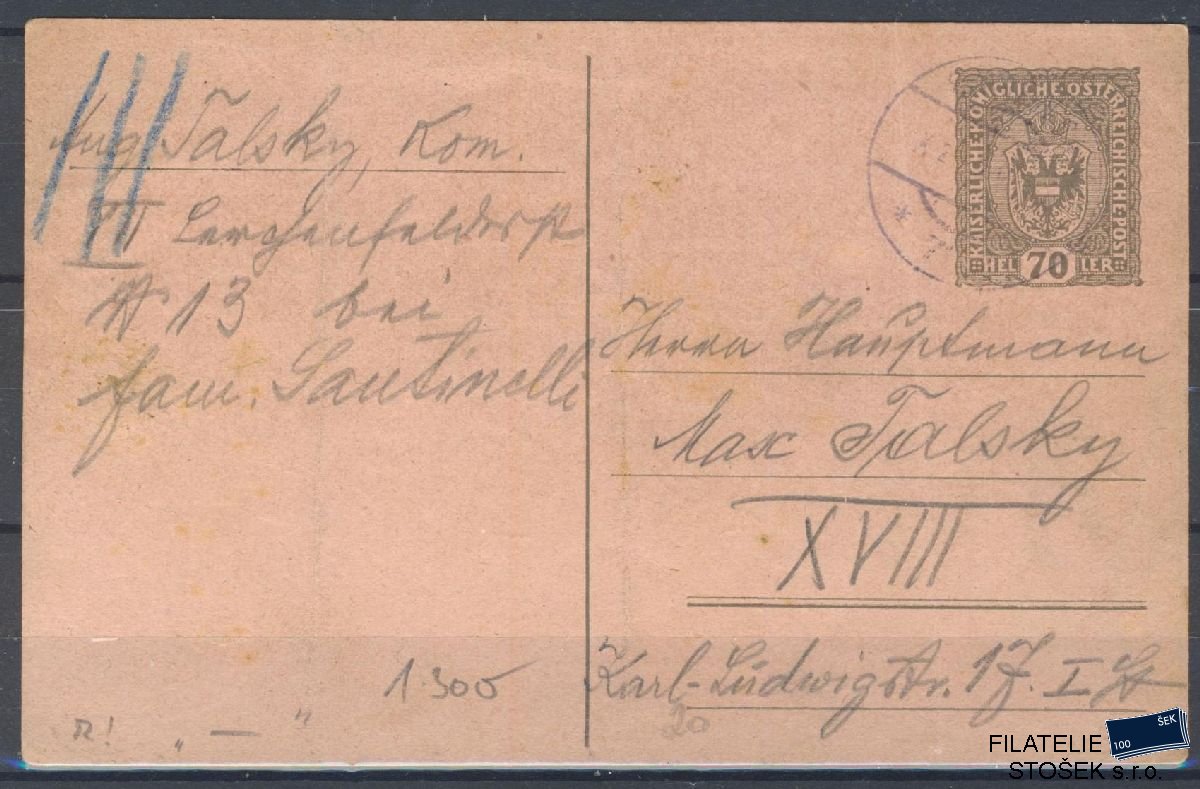 Aug Talsky, Kom.
Lerchenfelderst
13 bei
fam. Santinelli
KAISERLICHE·KÖNIGLICHE·ÖSTERREICHISCHE·POST
HEL 70 LER
Herrn Hauptmann
Max Talsky
XVIII
Karl-Ludwigstr. 17. I St
20
1.300
FILATELIE
STOŠEK s.r.o.
100
ŠEK